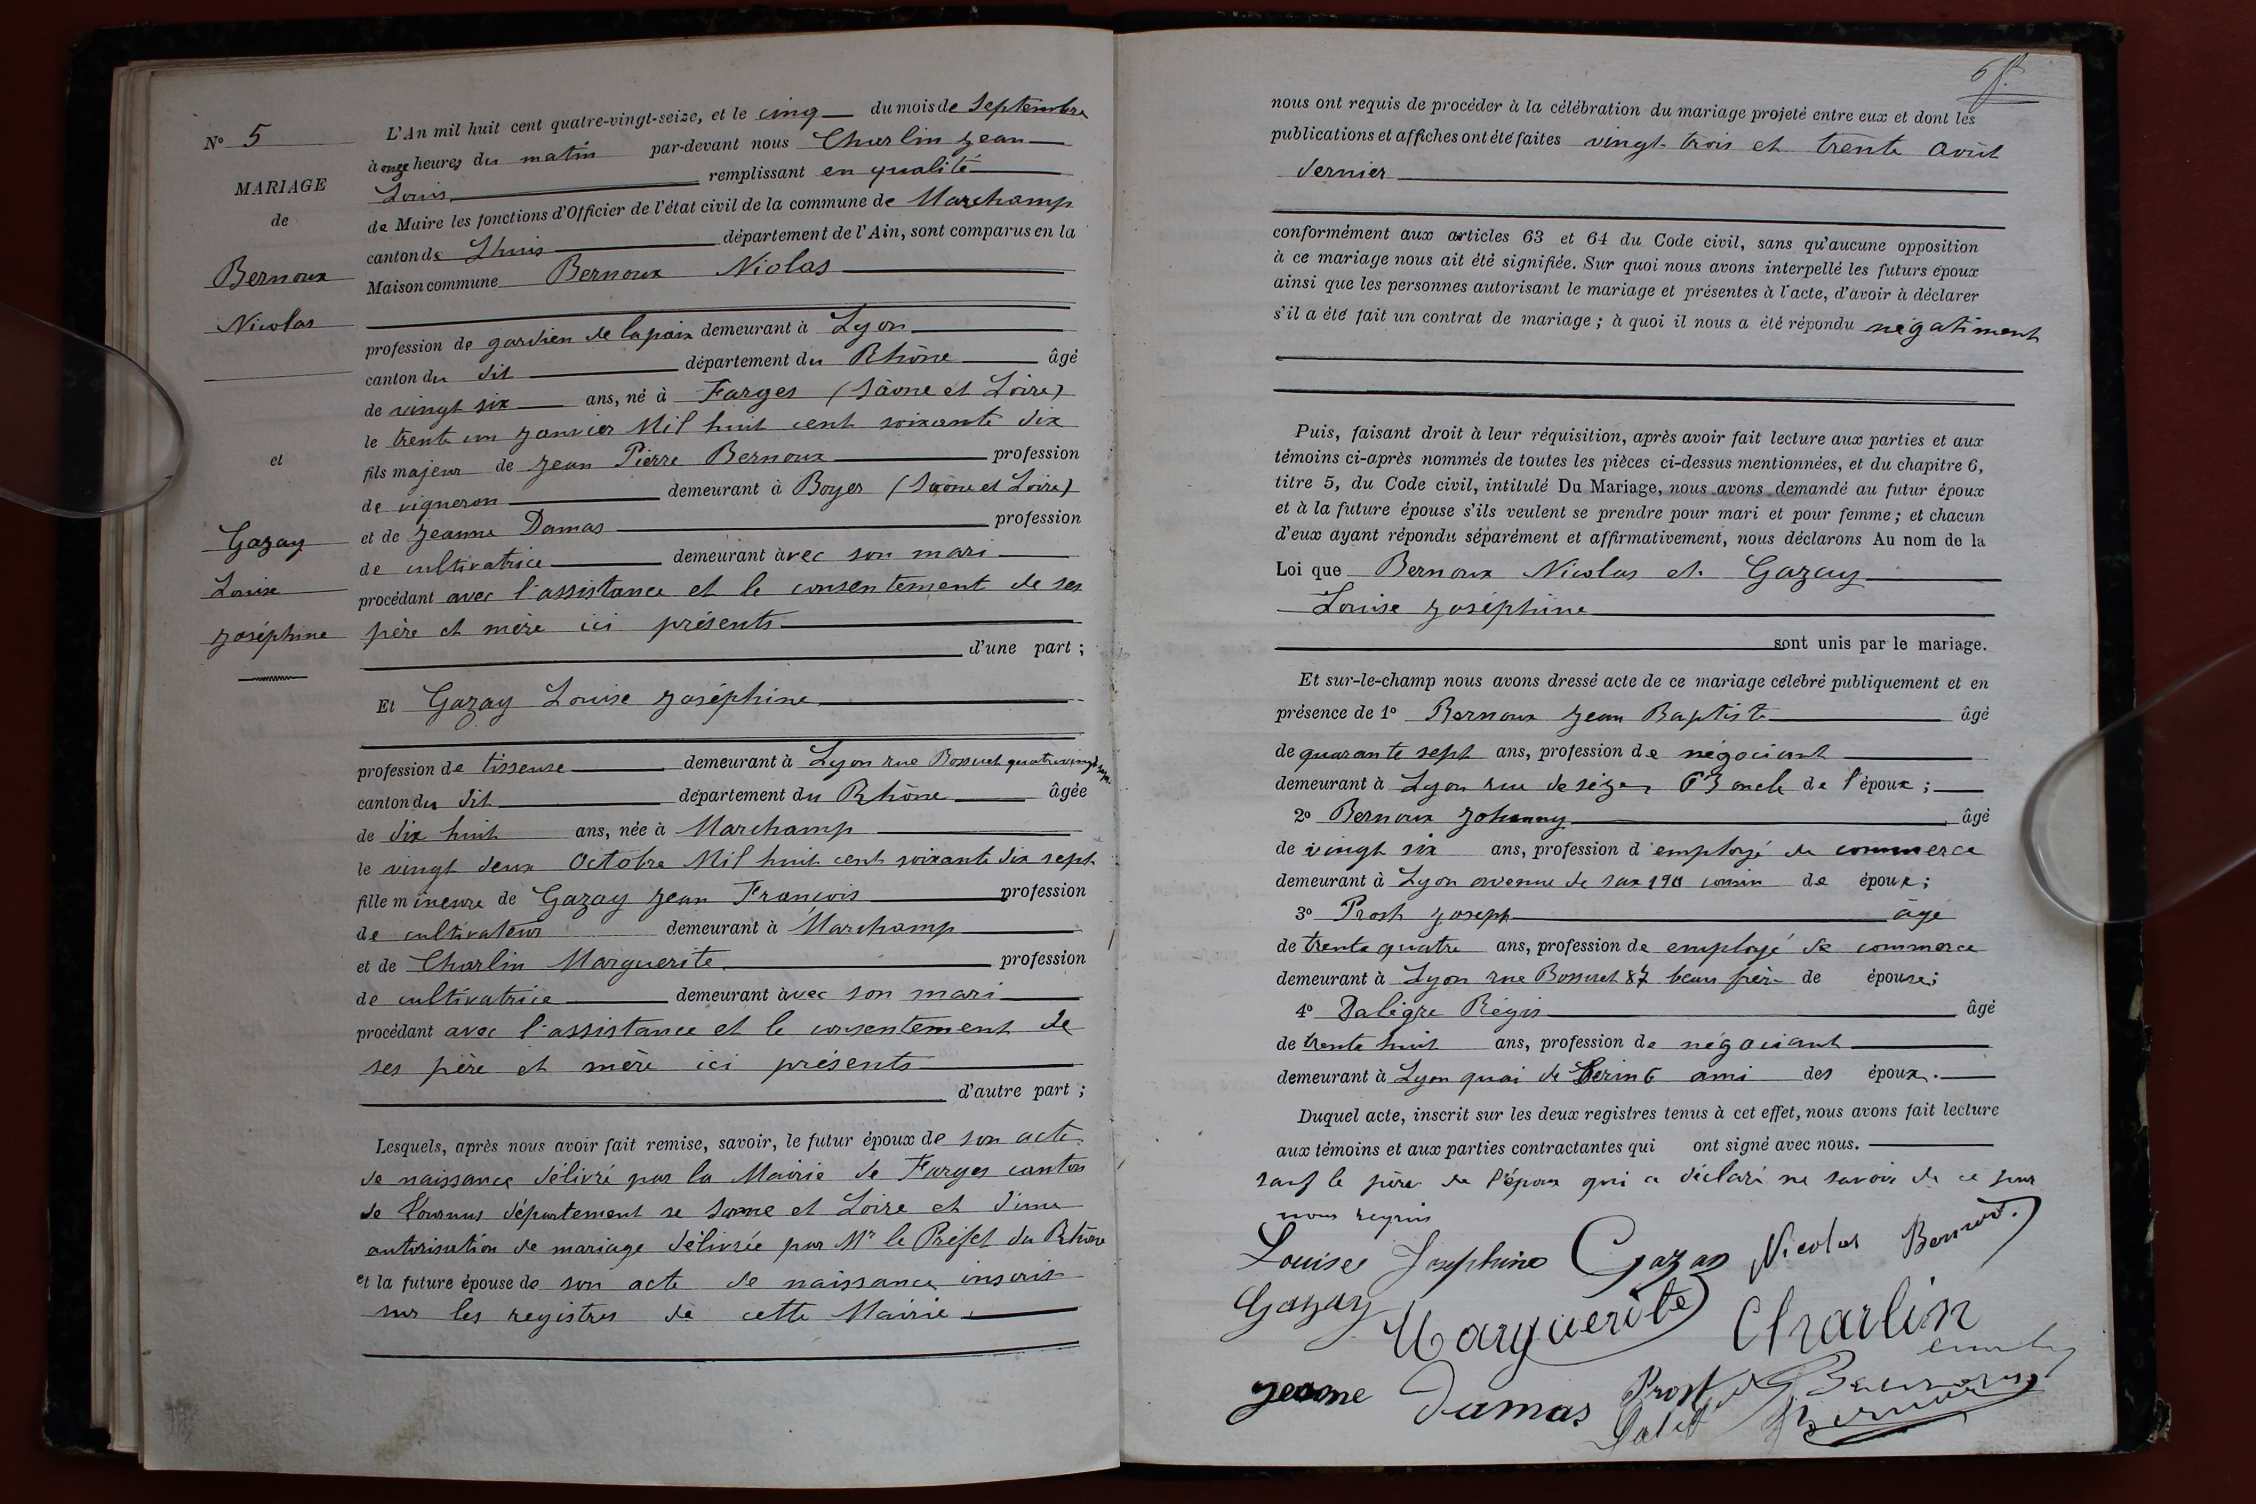 N° 5
MARIAGE
de
Bernoux
Nicolas
et
Gazay
Louise
Joséphine
L'An mil huit cent quatre-vingt-seize, et le cinq du mois de Septembre
à onze heures du matin par-devant nous Charlin Jean
Louis remplissant en qualité
de Maire les fonctions d'Officier de l'état civil de la commune de Marchamp
canton de Lhuis département de l'Ain, sont comparus en la
Maison commune Bernoux Niolas
profession de gardien de la paix demeurant à Lyon
canton du dit département du Rhône âgé
de vingt six ans, né à Farges (Saône et Loire)
le trente un Janvier Mil huit cent soixante dix
fils majeur de Jean Pierre Bernoux profession
de vigneron demeurant à Boyer (Saône et Loire)
et de Jeanne Damas profession
de cultivatrice demeurant avec son mari
procédant avec l'assistance et le consentement de ses
père et mère ici présents
d'une part ;
Et Gazay Louise Joséphine
profession de tisseuse demeurant à Lyon rue Bossuet quatre vingt sept
canton du dit département du Rhône âgée
de dix huit ans, née à Marchamp
le vingt deux Octobre Mil huit cent soixante dix sept
fille mineure de Gazay Jean François profession
de cultivateur demeurant à Marchamp
et de Charlin Marguerite profession
de cultivatrice demeurant avec son mari
procédant avec l'assistance et le consentement de
ses père et mère ici présents
d'autre part ;
Lesquels, après nous avoir fait remise, savoir, le futur époux de son acte
de naissance délivré par la Mairie de Farges canton
de Tournus département se Saone et Loire et d'une
autorisation de mariage délivrée par Mr le Préfet du Rhône
et la future épouse de son acte de naissance inscrit
sur les registres de cette Mairie.
6
nous ont requis de procéder à la célébration du mariage projeté entre eux et dont les
publications et affiches ont été faites vingt trois et trente Août
dernier
conformément aux articles 63 et 64 du Code civil, sans qu'aucune opposition
à ce mariage nous ait été signifiée. Sur quoi nous avons interpellé les futurs époux
ainsi que les personnes autorisant le mariage et présentes à l'acte, d'avoir à déclarer
s'il a été fait un contrat de mariage ; à quoi il nous a été répondu négatiment
Puis, faisant droit à leur réquisition, après avoir fait lecture aux parties et aux
témoins ci-après nommés de toutes les pièces ci-dessus mentionnées, et du chapitre 6,
titre 5, du Code civil, intitulé Du Mariage, nous avons demandé au futur époux
et à la future épouse s'ils veulent se prendre pour mari et pour femme ; et chacun
d'eux ayant répondu séparément et affirmativement, nous déclarons Au nom de la
Loi que Bernoux Nicolas et Gazay
Louise Joséphine
sont unis par le mariage.
Et sur-le-champ nous avons dressé acte de ce mariage célébré publiquement et en
présence de 1° Bernoux Jean Baptiste âgé
de quarante sept ans, profession de négociant
demeurant à Lyon rue de sèze 63 oncle de l'époux ;
2° Bernoux Johanny âgé
de vingt six ans, profession d'employé de commerce
demeurant à Lyon avenue de saxe 190 cousin de époux ;
3° Prost Joseph âgé
de trente quatre ans, profession de employé de commerce
demeurant à Lyon rue Bossuet 87 beau frère de épouse ;
4° Daligre Régis âgé
de trente huit ans, profession de négociant
demeurant à Lyon quai de Serin 6 ami des époux.
Duquel acte, inscrit sur les deux registres tenus à cet effet, nous avons fait lecture
aux témoins et aux parties contractantes qui ont signé avec nous.
sauf le père de l'époux qui a déclaré ne savoir de ce par
nous requis
Louise Josephine Gazay Nicolas Bernoux
Gazay Marguerite Charlin
Jeanne Damas Prost Bernoux
Bernoux